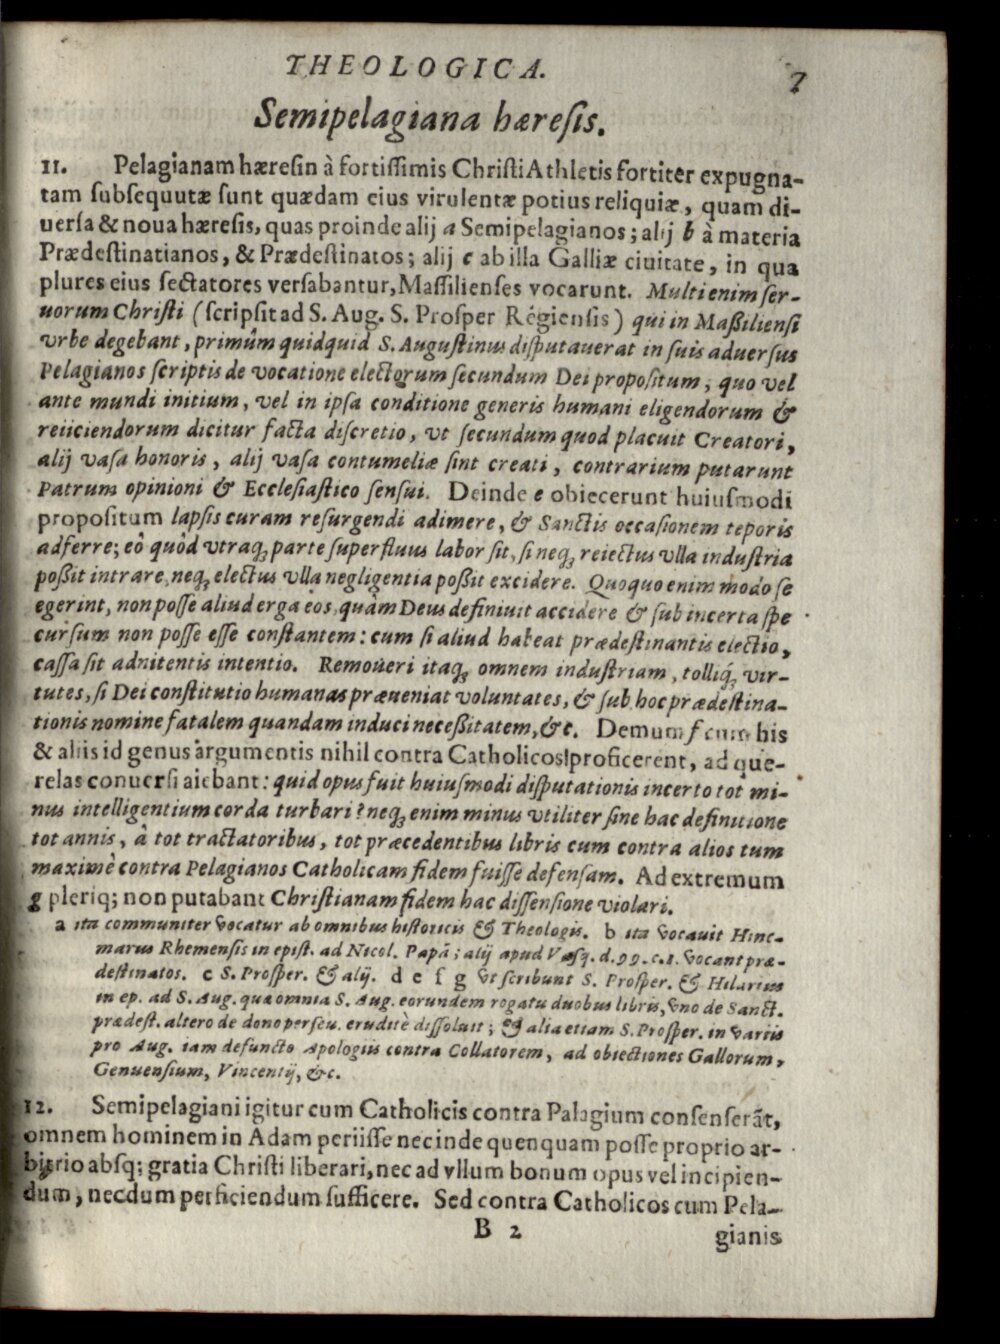 THEOLOGICA. 7
Semipelagiana hæresis.
11. Pelagianam hæresin à fortissimis Christi Athletis fortiter expugna-
tam subsequutæ sunt quædam eius virulentæ potius reliquiæ, quam di-
uersa & noua hæresis, quas proinde alij a Semipelagianos; alij b à materia
Prædestinatianos, & Prædestinatos; alij c ab illa Galliæ ciuitate, in qua
plures eius sectatores versabantur, Massilienses vocarunt. Multi enim ser-
uorum Christi (scripsit ad S. Aug. S. Prosper Régiensis) qui in Maßiliensi
vrbe degebant, primùm quidquid S. Augustinus disputauerat in suis aduersus
Pelagianos scriptis de vocatione electorum secundum Dei propositum, quo vel
ante mundi initium, vel in ipsa conditione generis humani eligendorum &
reiiciendorum dicitur facta discretio, vt secundum quod placuit Creatori,
alij vasa honoris, alij vasa contumeliæ sint creati, contrarium putarunt
Patrum opinioni & Ecclesiastico sensui. Deinde e obiecerunt huiusmodi
propositum lapsis curam resurgendi adimere, & Sanctis occasionem teporis
adferre; eò quòd vtraq; parte superfluus labor sit, si neq; reiectus vlla industria
poßit intrare, neq; electus vlla negligentia poßit excidere. Quoquo enim modo se
egerint, non posse aliud erga eos, quàm Deus definiuit accidere & sub incerta spe
cursum non posse esse constantem: cum si aliud habeat prædestinantis electio,
cassa sit adnitentis intentio. Remoueri itaq; omnem industriam, tolliq; vir-
tutes, si Dei constitutio humanas præueniat voluntates, & sub hoc prædestina-
tionis nomine fatalem quandam induci neceßitatem, &c. Demum f cum his
& aliis id genus argumentis nihil contra Catholicos proficerent, ad que-
relas conuersi aiebant: quid opus fuit huiusmodi disputationis incerto tot mi-
nus intelligentium corda turbari? neq; enim minus vtiliter sine hac definitione
tot annis, à tot tractatoribus, tot præcedentibus libris cum contra alios tum
maximè contra Pelagianos Catholicam fidem fuisse defensam. Ad extremum
g pleriq; non putabant Christianam fidem hac dissensione violari.
a ita communiter vocatur ab omnibus historicis & Theologis. b ita vocauit Hinc-
marus Rhemensis in epist. ad Nicol. Papã; alij apud Vasq. d. 99. c. 1. vocant præ-
destinatos. c S. Prosper. & alij. d e f g vt scribunt S. Prosper. & Hilarius
in ep. ad S. Aug. quæ omnia S. Aug. eorundem rogatu duobus libris, vno de Sanct.
prædest. altero de dono perseu. eruditè dissoluit; & alia etiam S. Prosper. in variis
pro Aug. iam defuncto Apologiis contra Collatorem, ad obiectiones Gallorum,
Genuensium, Vincentij, &c.
12. Semipelagiani igitur cum Catholicis contra Palagium consenserãt,
omnem hominem in Adam periisse nec inde quenquam posse proprio ar-
bitrio absq; gratia Christi liberari, nec ad vllum bonum opus vel incipien-
dum, necdum perficiendum sufficere. Sed contra Catholicos cum Pela-
B 2 gianis